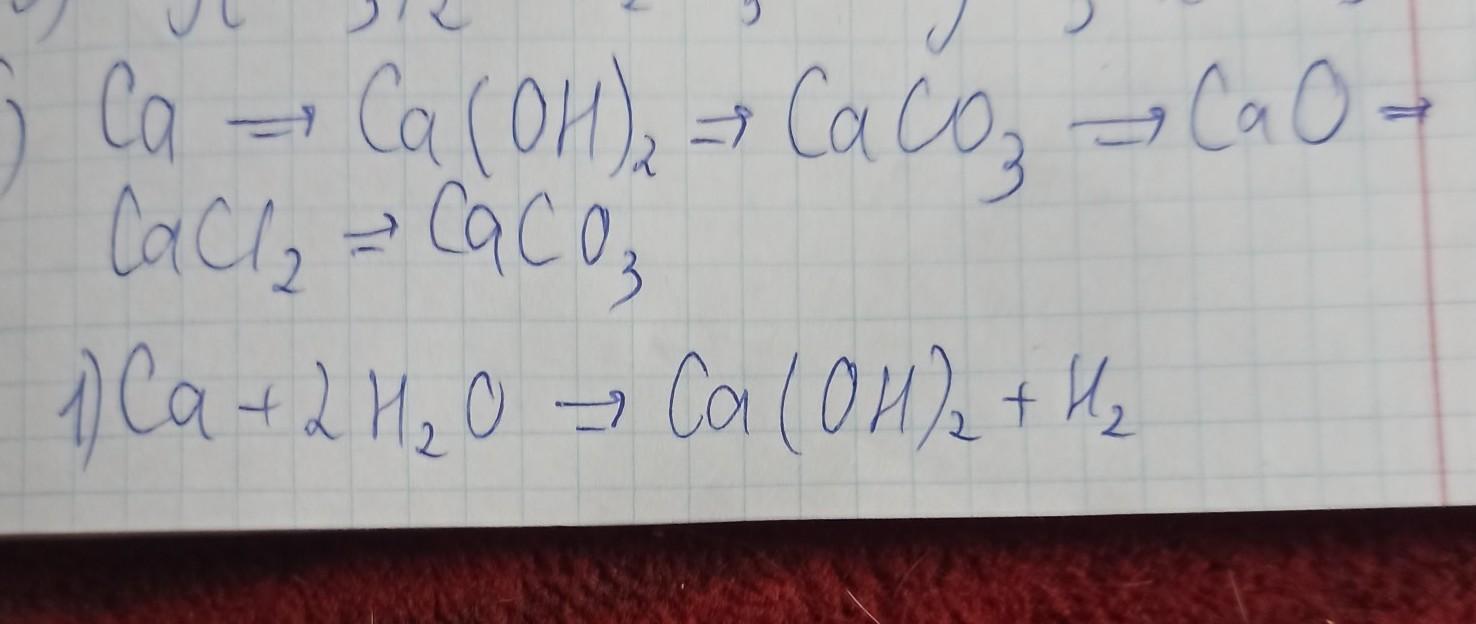 ) Ca ⇒ Ca(OH)₂ ⇒ CaCO₃ ⇒ CaO ⇒
CaCl₂ ⇒ CaCO₃
1) Ca + 2H₂O ⇒ Ca(OH)₂ + H₂